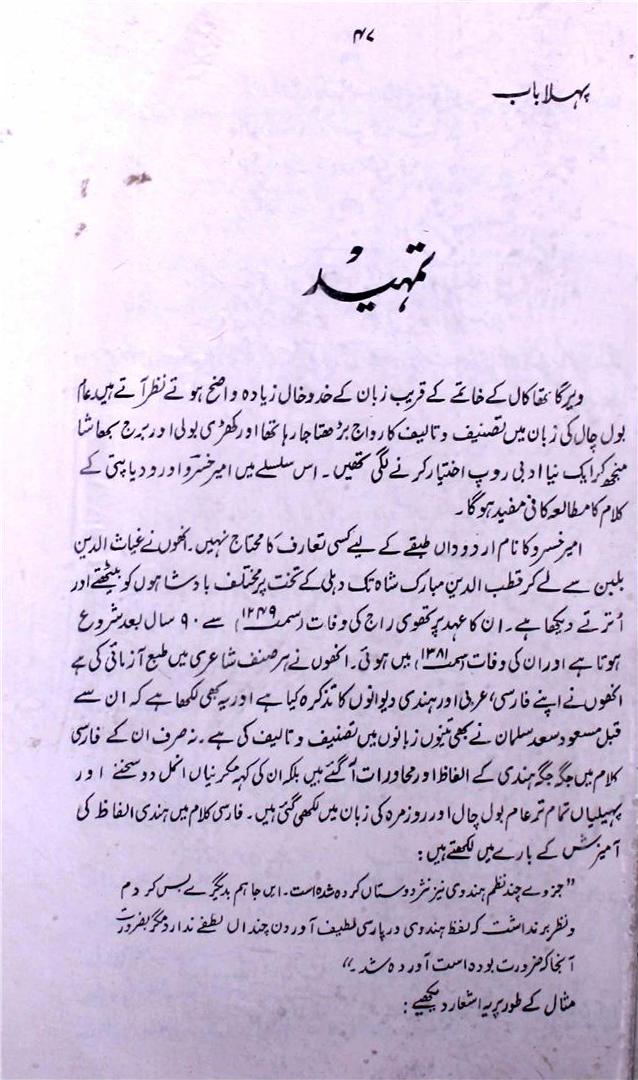 ۴۷
پہلا باب
تمہید
ویر گاتھا کال کے خاتمے کے قریب زبان کے خدوخال زیادہ واضح ہوتے نظر آتے ہیں عام
بول چال کی زبان میں تصنیف و تالیف کا رواج بڑھتا جا رہا تھا اور کھڑی بولی اور برج بھاشا
منجھ کر ایک نیا ادبی روپ اختیار کرنے لگی تھیں۔ اس سلسلے میں امیر خسرو اور ودیا پتی کے
کلام کا مطالعہ کافی مفید ہوگا۔
امیر خسرو کا نام اردو داں طبقے کے لیے کسی تعارف کا محتاج نہیں۔ انھوں نے غیاث الدین
بلبن سے لے کر قطب الدین مبارک شاہ تک دہلی کے تخت پر مختلف بادشاہوں کو بیٹھتے اور
اُترتے دیکھا ہے۔ ان کا عہد پرتھوی راج کی وفات (سمت ۱۲۴۹) سے ۹۰ سال بعد شروع
ہوتا ہے اور ان کی وفات سمت ۱۳۸۱ میں ہوئی۔ انھوں نے ہر صنف شاعری میں طبع آزمائی کی ہے
انھوں نے اپنے فارسی، عربی اور ہندی دیوانوں کا تذکرہ کیا ہے اور یہ بھی لکھا ہے کہ ان سے
قبل مسعود سعد سلمان نے بھی تینوں زبانوں میں تصنیف و تالیف کی ہے۔ نہ صرف ان کے فارسی
کلام میں جگہ جگہ ہندی کے الفاظ اور محاورات آگئے ہیں بلکہ ان کی کہہ مکرنیاں انمل دو سخنے اور
پہیلیاں تمام تر عام بول چال اور روزمرہ کی زبان میں لکھی گئی ہیں۔ فارسی کلام میں ہندی الفاظ کی
آمیزش کے بارے میں لکھتے ہیں:
"جزوے چند نظم ہندوی نیز نثر دوستاں کردہ شدہ است۔ ایں جا ہم بدیگرے بس کردم
و نظر برنداشت کہ لفظ ہندوی در پارسی لطیف آوردن چنداں لطفے ندارد مگر بضرورت
آنجا کہ ضرورت بودہ است آوردہ شد۔"
مثال کے طور پر یہ اشعار دیکھیے: